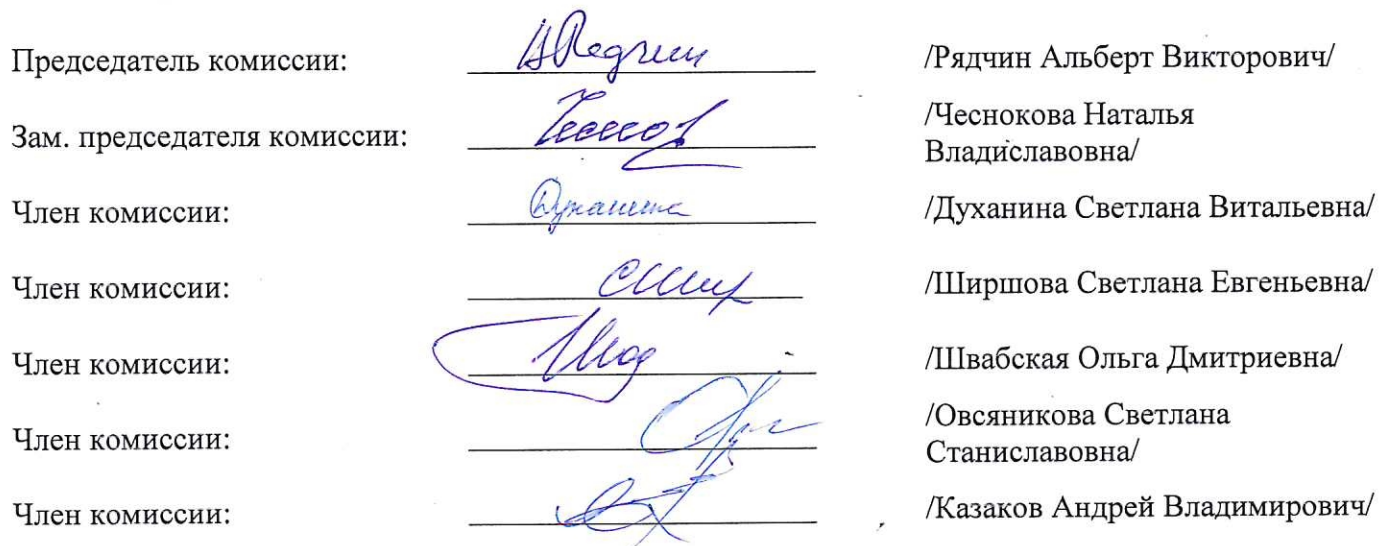 Председатель комиссии: /Рядчин Альберт Викторович/
Зам. председателя комиссии: /Чеснокова Наталья
Владиславовна/
Член комиссии: Духанина /Духанина Светлана Витальевна/
Член комиссии: /Ширшова Светлана Евгеньевна/
Член комиссии: /Швабская Ольга Дмитриевна/
Член комиссии: /Овсяникова Светлана
Станиславовна/
Член комиссии: /Казаков Андрей Владимирович/